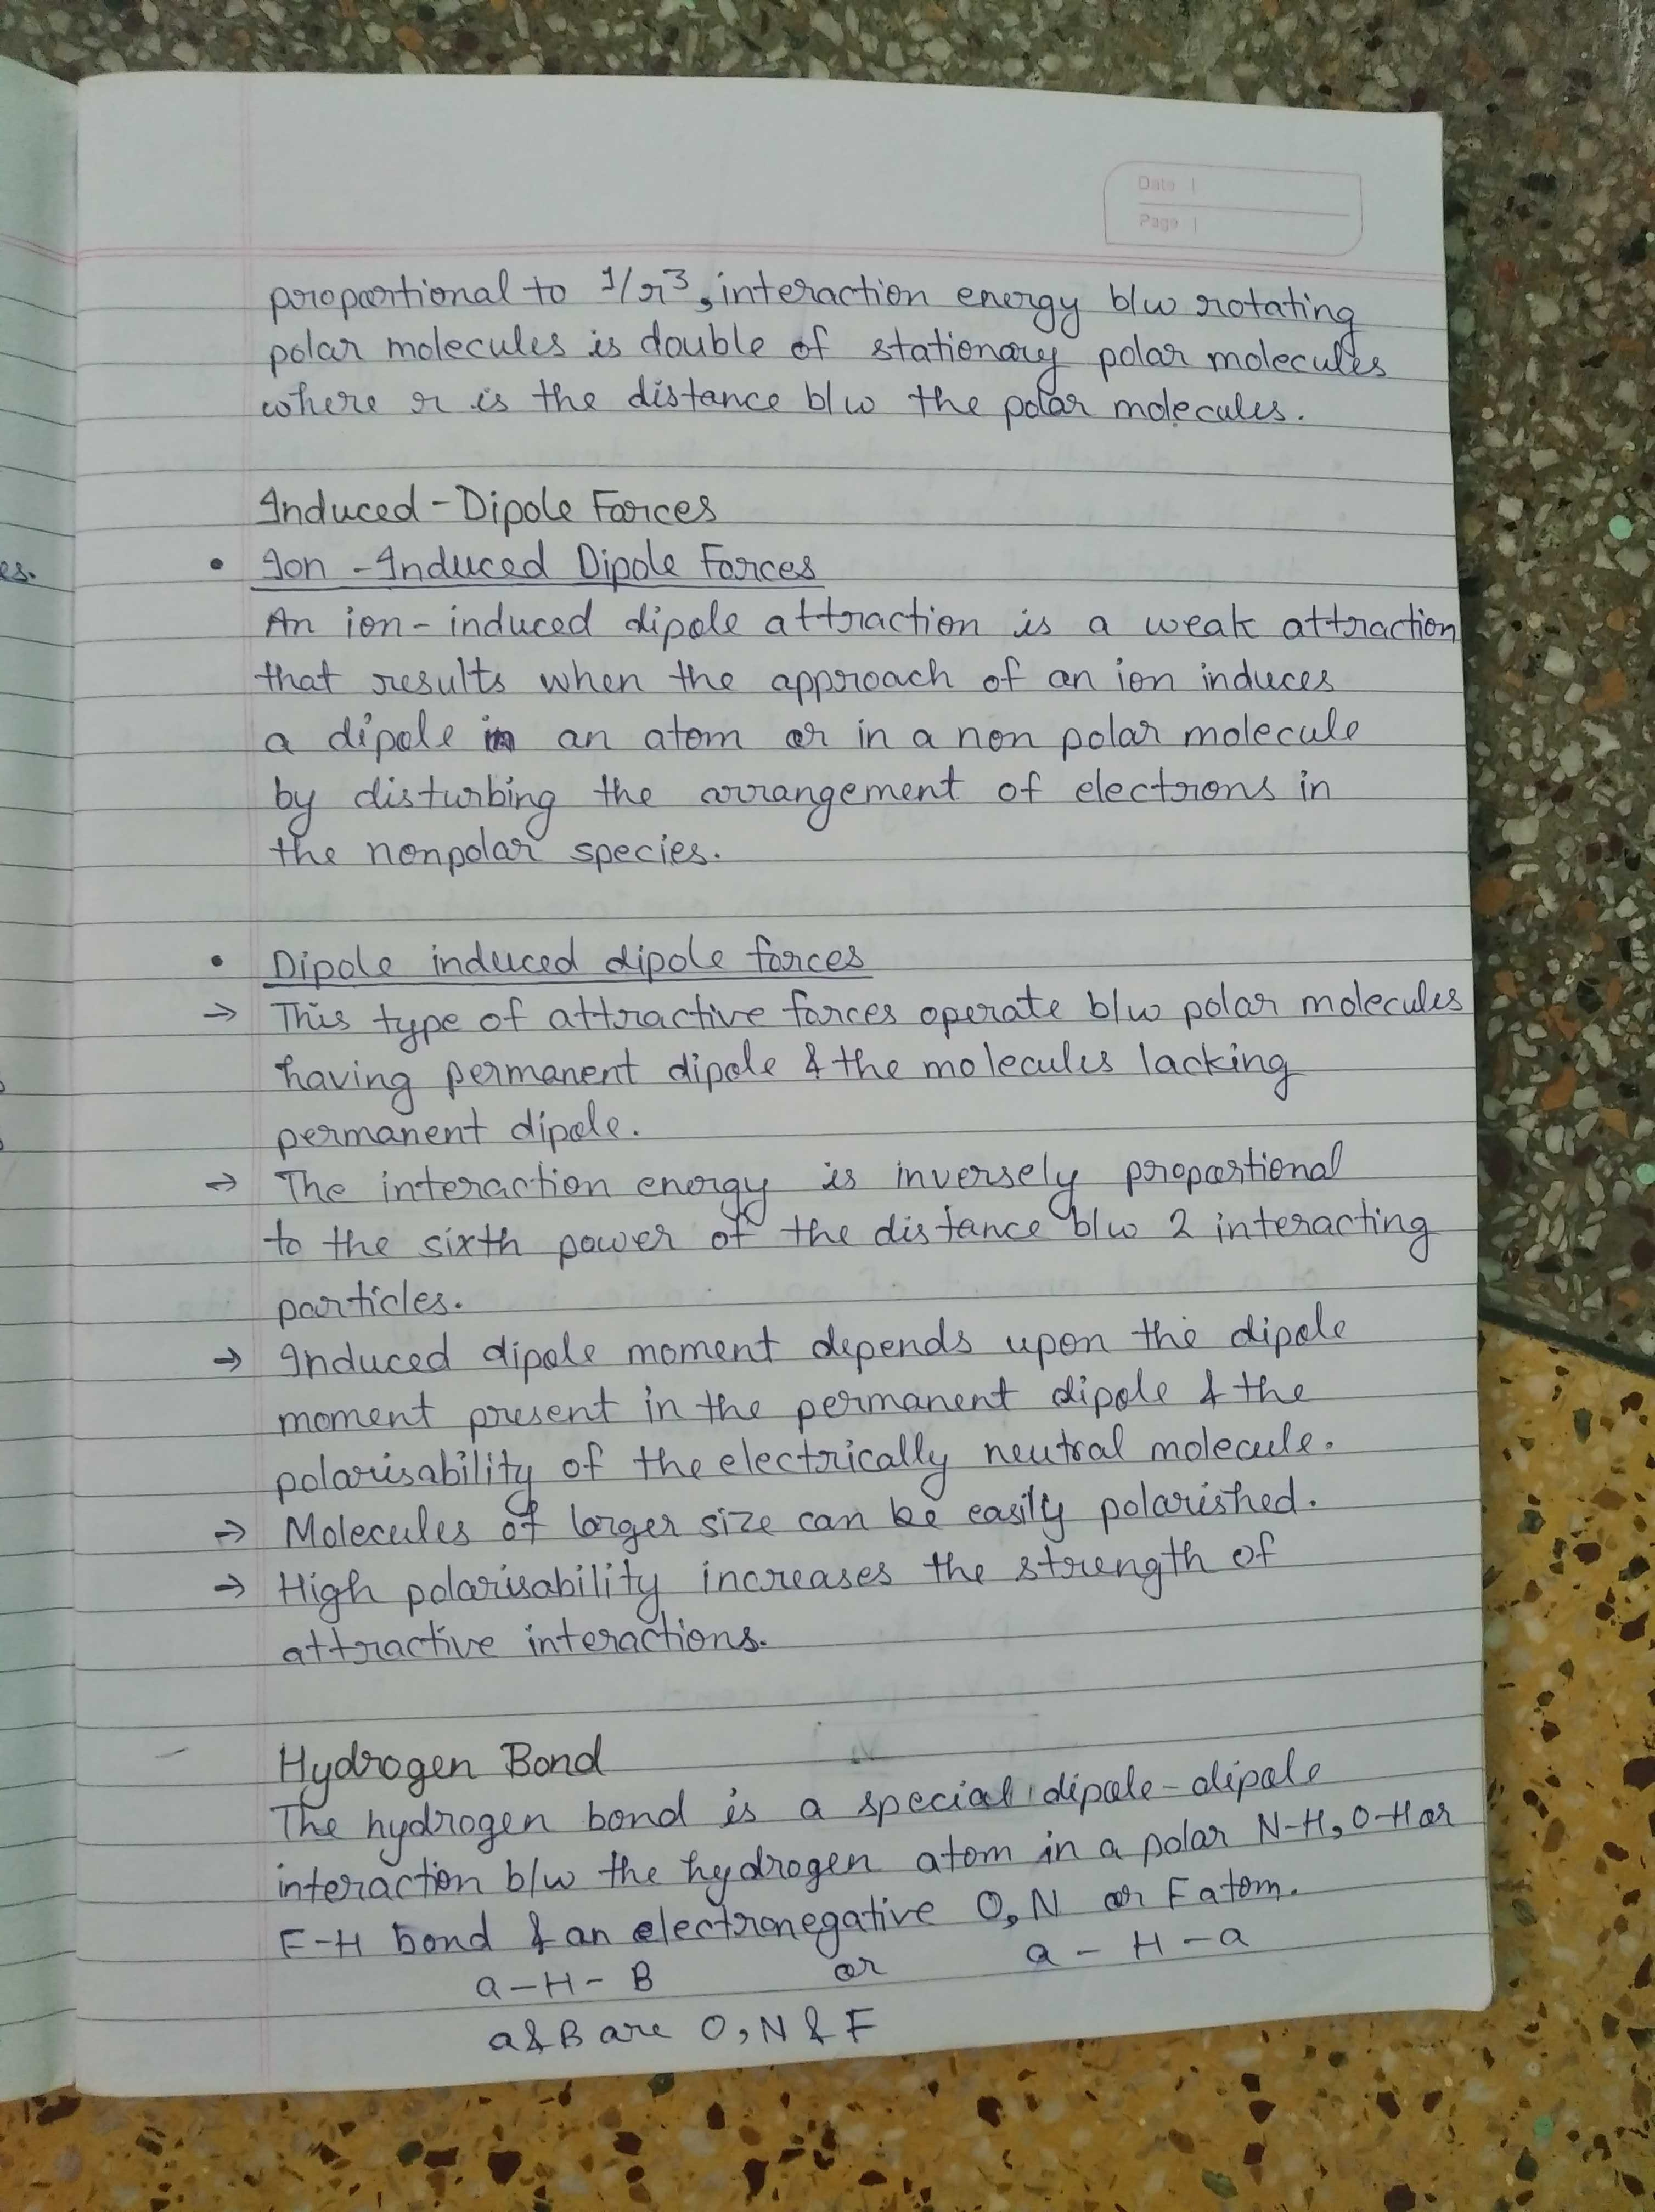 Date
Page
proportional to 1/r³, interaction energy b/w rotating
polar molecules is double of stationary polar molecules
where r is the distance b/w the polar molecules.
Induced-Dipole Forces
• Ion-Induced Dipole Forces
An ion-induced dipole attraction is a weak attraction
that results when the approach of an ion induces
es.
a dipole in an atom or in a non polar molecule
by disturbing the arrangement of electrons in
the nonpolar species.
• Dipole induced dipole forces
→ This type of attractive forces operate b/w polar molecules
having permanent dipole & the molecules lacking
permanent dipole.
→ The interaction energy is inversely proportional
to the sixth power of the distance b/w 2 interacting
particles.
→ Induced dipole moment depends upon the dipole
moment present in the permanent dipole & the
polarisability of the electrically neutral molecule.
→ Molecules of larger size can be easily polarished.
→ High polarisability increases the strength of
attractive interactions.
Hydrogen Bond
The hydrogen bond is a special dipole-dipole
interaction b/w the hydrogen atom in a polar N-H, O-H or
F-H bond & an electronegative O, N or F atom.
a-H-B or a-H-a
a & B are O, N & F